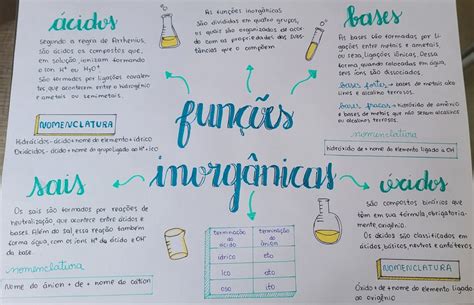 ácidos
Segundo a regra de Arrhenius,
são ácidos os compostos que,
em solução ionizam formando
o íon H⁺ ou H₃O⁺.
São formados por ligações covalen-
tes que acontecem entre o hidrogênio
e ametais ou semimetais.
NOMENCLATURA
Hidrácidos - ácido + nome do elemento + ídrico
Oxiácidos - ácido + nome do grupo ligado ao H⁺ + ico
As funções inorgânicas
São divididas em quatro grupos,
os quais são organizados de acor-
do com as propriedades das subs-
tâncias que o compõem
bases
As bases são formadas por li-
gações entre metais e ametais,
ou seja, ligações iônicas. Dessa
forma quando colocadas em água,
seus íons são dissociados.
bases fortes → bases de metais alca
linos e alcalino terrosos.
bases fracas → hidróxido de amônio
e bases de metais que não sejam alcalinos
ou alcalinos terrosos.
nomenclatura
hidróxido de + nome do elemento ligado a OH
funções
inorgânicas
sais
Os sais são formados por reações de
neutralização, que acontece entre ácidos e
bases. Além do sal, essa reação também
forma água, com os íons H⁺ do ácido e OH⁻
da base.
nomenclatura
Nome do ânion + de + nome do cátion
terminação do ácido
terminação do ânion
ídrico
eto
ico
ato
oso
ito
óxidos
São compostos binários que
têm em sua fórmula, obrigatoria-
mente oxigênio.
Os óxidos são classificados em
ácidos, básicos, neutros e anfóteros
NOMENCLATURA
Óxido + de + nome do elemento ligado
ao oxigênio